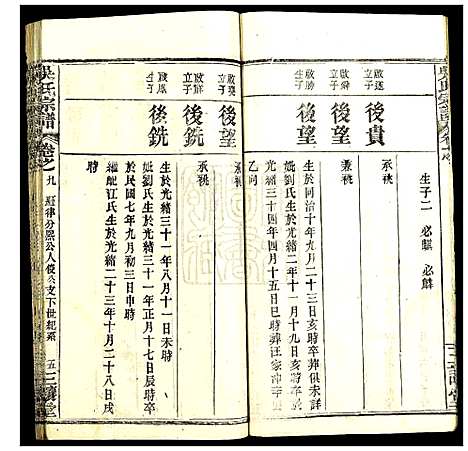 生子二 必麒 必麟
啟遜立子
後貴
承祧
啟舜立子
後望
兼祧
啟勝生子
後望
生於同治十年九月二十三日亥時卒葬俱未詳
妣劉氏生於光緒二年十一月初六日亥時卒
光緒三十四年四月十五日巳時葬汪家沖
乙向
啟燊立子
後望
承祧
啟鮮立子
後銑
承祧
啟應生子
後銑
生於光緒三十一年八月十一日未時
妣劉氏生於光緒三十一年正月十七日辰時卒
於民國七年九月初三日申時
繼配江氏生於光緒二十三年十月二十八日戌
時
吳氏宗譜
卷之九
熙公人俊公支下世紀系
五
三讓堂